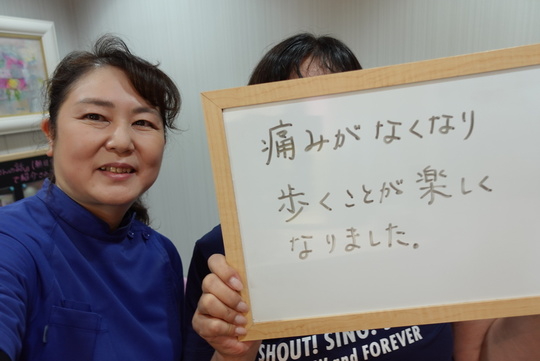 痛みがなくなり
歩くことが楽しく
なりました。
SHOUT! SING!
and FOREVER